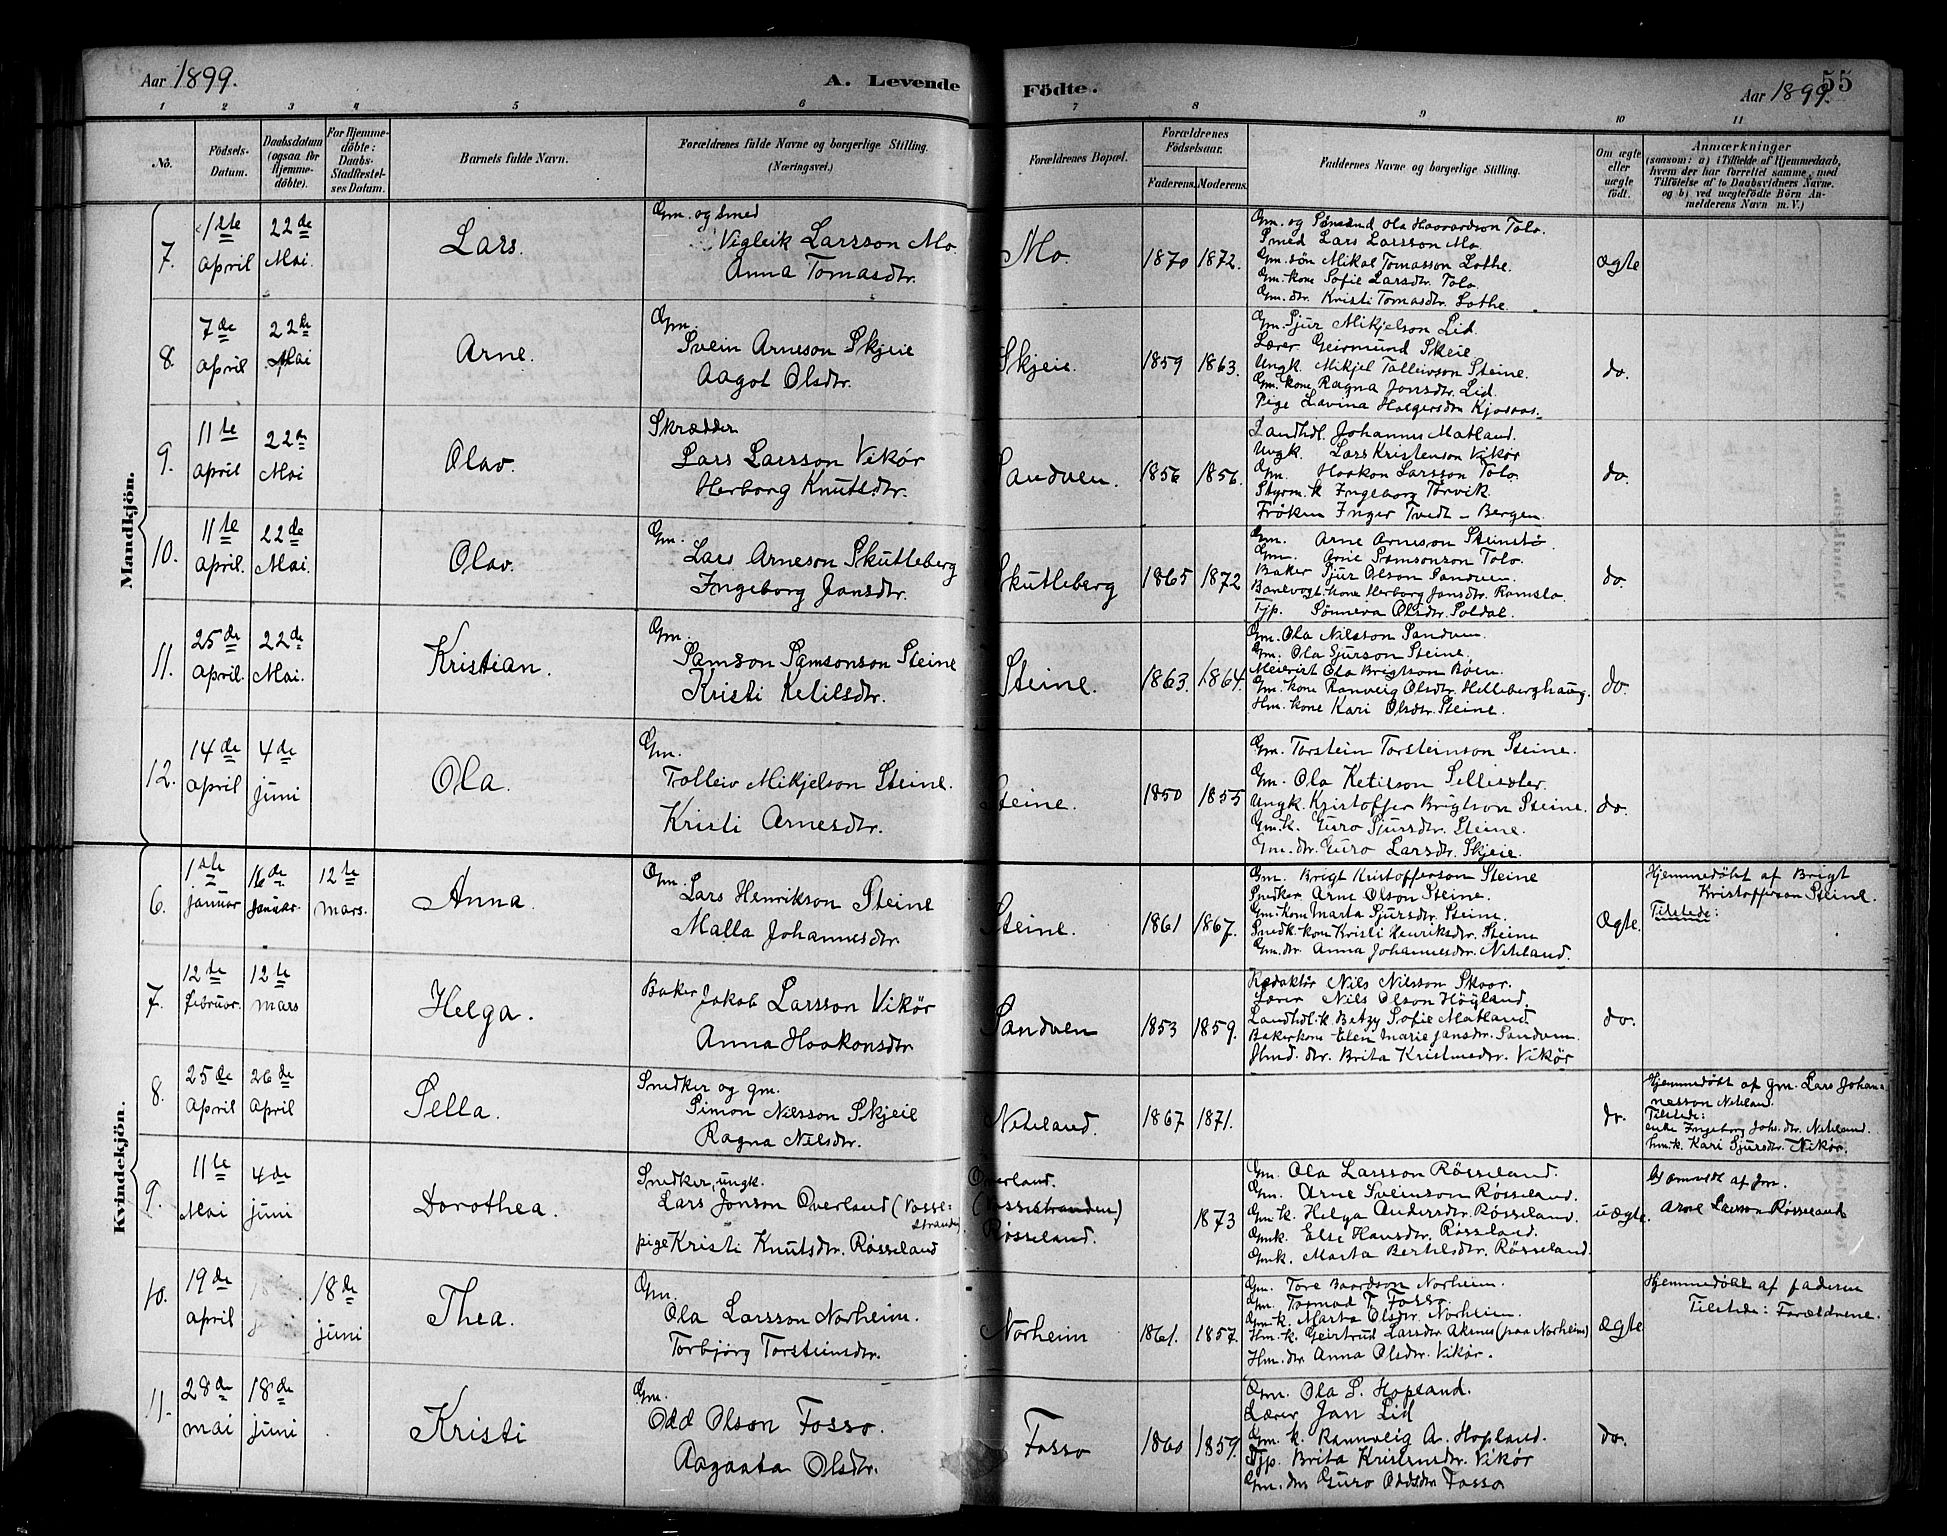 Aar 1899.
A. Levende
Födte.
Aar 1899.
55
1 2 3 4 5 6 7 8 9 10 11
No.
Födsels-Datum.
Daabsdatum (ogsaa for Hjemmedöbte).
For Hjemmedöbte: Daabs-Stadfæstelses Datum.
Barnets fulde Navn.
Forældrenes fulde Navne og borgerlige Stilling.
(Næringsvei.)
Forældrenes Bopæl.
Forældrenes Födselsaar.
Faderens. Moderens.
Faddernes Navne og borgerlige Stilling.
Om ægte eller uægte födt.
Anmærkninger
(saasom: a) i Tilfælde af Hjemmedaab,
hvem der har forrettet samme, med
Tilföielse af to Daabsvidners Navne.
og b) ved uægtefödte Börn Anmelderens Navn m. V.)
Mandkjön.
7.
1ste April
22de Mai.
Lars.
Gm. og Smed
Vigleik Larsson Mo.
Anna Tomasdtr.
Mo
1870 1872.
Gm. og Ola Haavardson Tolo.
Smed Lars Larsson Mo.
Gm. søn Mikal Tomasson Lothe.
Gm. kone Sofie Larsdtr. Tolo.
Gm. dtr. Kristi Tomasdtr. Lothe.
ægte
8.
7de April
22de Mai
Arne.
Gm.
Svein Arneson Skjeie
Aagot Olsdtr.
Skjeie.
1859 1863.
Gm. Sjur Mikjelson Lid.
Lærer Geirmund Skeie
Ungk. Mikjel Tolleivson Steine.
Gm. kone Ragna Jonsdtr. Lid.
Pige Lavina Holgersdtr Kjosaas.
do.
9.
11te April
22de Mai
Olav.
Skrædder
Lars Larsson Vikør
Herborg Knutsdtr.
Sandven.
1856 1856.
Landhdl. Johannes Matland.
Ungk. Lars Kristenson Vikør
Gm. Haakon Larsson Tolo
Styrm. k Ingeborg Tørvik.
Frøken Inger Tvedt - Bergen.
do.
10.
11te April.
22de Mai.
Olav.
Gm.
Lars Arneson Skutleberg
Ingeborg Jansdtr.
Skutleberg
1865 1872
Gm. Arne Arneson Steinstø.
Gm. Arne Samsonson Tolo.
Baker Sjur Olson Sandven.
Banevogt. kone Herborg Jansdtr. Ramslo.
Tjp. Sønneva Olsdtr. Soldal.
do.
11.
25de April.
22de Mai.
Kristian.
Gm.
Samson Samsonson Steine
Kristi Ketilsdtr.
Steine.
1863. 1864.
Gm. Ola Nilsson Sandven.
Gm. Ola Sjurson Steine.
Meierist Ola Brigtson Bøen.
Gm. kone Ranveig Olsdtr. Helleberghaug.
Hm. kone Kari Olsdtr. Steine.
do.
12.
14de April
4de juni
Ola.
Gm.
Tolleiv Mikjelson Steine.
Kristi Arnesdtr.
Steine.
1850 1855
Gm. Torstein Torsteinson Steine.
Gm. Ola Ketilson
Ungk. Kristoffer Brigtson Steine.
Gm. k. Guro Sjursdtr. Steine.
Gm. dtr. Guro Larsdtr. Skjeie.
do.
Kvindekjön.
6.
1ste januar
16de januar.
12te mars.
Anna.
Gm.
Lars Henrikson Steine
Malla Johannesdtr.
Steine.
1861 1867.
Gm. Brigt Kristofferson Steine
Snedker Arne Olson Steine.
Gm. kone Marta Sjursdtr. Steine.
Snedk. kone Kristi Henriksdtr. Steine
Gm. dtr Anna Johannesdtr. Neteland.
Ægte.
Hjemmedøbt af Brigt
Kristofferson Steine.
Tilstede:
7.
12te februar.
12te mars
Helga.
Baker Jakob Larsson Vikør
Anna Haakonsdtr
Sandven
1853 1859.
Redaktør Nils Nilsson Skaar.
Lærer Nils Olson Høyland.
Landhdl. k. Betzy Sofie Matland.
Bakerkone Elen Marie Jansdtr. Sandven.
dtr. Brita Kristensdtr. Vikør
do.
8.
25de April
26de April
Sella.
Snedker og gm.
Simon Nilsson Skjeie
Ragna Nilsdtr.
Neteland.
1867 1871.
do.
Hjemmedøbt af gm. Lars Johan-
nesson Neteland.
Tilstede:
enke Ingeborg Johs. dtr. Neteland.
hm. k. Kari Sjursdtr. Vikør.
9.
11te Mai
4de juni
Dorothea.
Snedker, ungk.
Lars Jonson Overland (Vosse-
stranden)
pige Kristi Knutsdtr. Røsseland
Overland.
(Vossestranden)
Røsseland.
1873
Gm. Ola Larsson Røsseland.
Gm. Arne Sveinson Røsseland.
Gm. k. Helga Andersdtr. Røsseland.
Gmk. Elsi Hansdtr. Røsseland.
Gmk. Marta Bertelsdtr. Røsseland.
uægte.
af
Arne Larsson Røsseland
10.
19de April
18de juni
Thea.
Gm.
Ola Larsson Norheim.
Torbjørg Torsteinsdtr.
Norheim
1861. 1857.
Gm. Tore Baardson Norheim.
Gm. Tormod T. Fosso
Gm. k. Marta Olsdtr. Norheim.
Hm. k. Geirtrud Larsdtr Aksnes (paa Norheim)
Hm. dtr Anna Olsdtr. Vikør.
Ægte
Hjemmedøbt af faderen
Tilstede: Forældrene.
11.
28de mai
18de juni
Kristi
Gm.
Odd Olson Fosso.
Aagaata Olsdtr.
Fosso
1860 1859.
Gm. Ola S. Hopland.
Lærer Jan Lid
Gm. k. Rannveig A. Hopland.
Tjp. Brita Kristensdtr. Vikør
Gm. dtr Guro Oddsdtr Fosso
do.